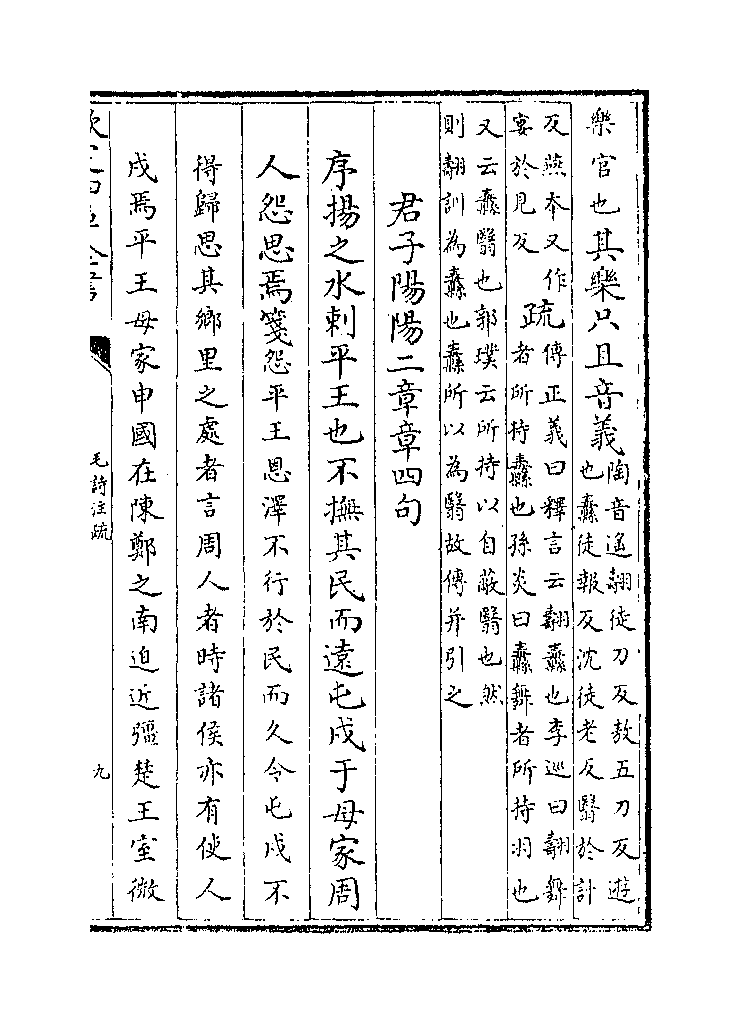 樂官也其樂只且音義陶音遙翿徒刀反敖五刀反遊
也纛徒報反沈徒老反翳於計
反燕本又作
宴於見反
疏傳正義曰釋言云翿纛也李巡曰翿舞
者所持纛也孫炎曰纛舞者所持羽也
又云纛翳也郭璞云所持以自蔽翳也然
則翿訓為纛也纛所以為翳故傳并引之
君子陽陽二章章四句
序揚之水刺平王也不撫其民而遠屯戍于母家周
人怨思焉箋怨平王恩澤不行於民而久令屯戍不
得歸思其鄉里之處者言周人者時諸侯亦有使人
戍焉平王母家申國在陳鄭之南迫近彊楚王室微
欽定四庫全書
毛詩注疏
九